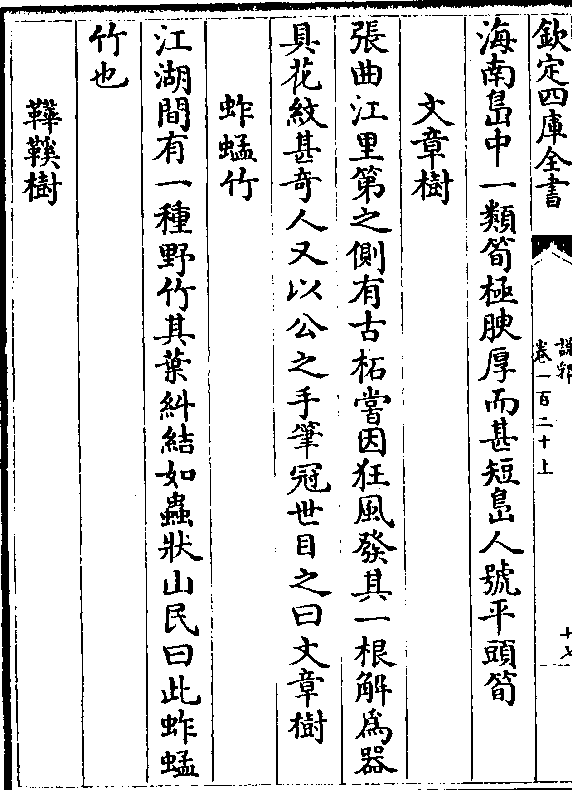 欽定四庫全書
說郛
卷一百二十上
十七
海南島中一類筍極腴厚而甚短島人號平頭筍
文章樹
張曲江里第之側有古柘嘗因狂風發其一根解為器
具花紋甚奇人又以公之手筆冠世目之曰文章樹
蚱蜢竹
江湖間有一種野竹其葉糾結如蟲狀山民曰此蚱蜢
竹也
鞾䩫樹